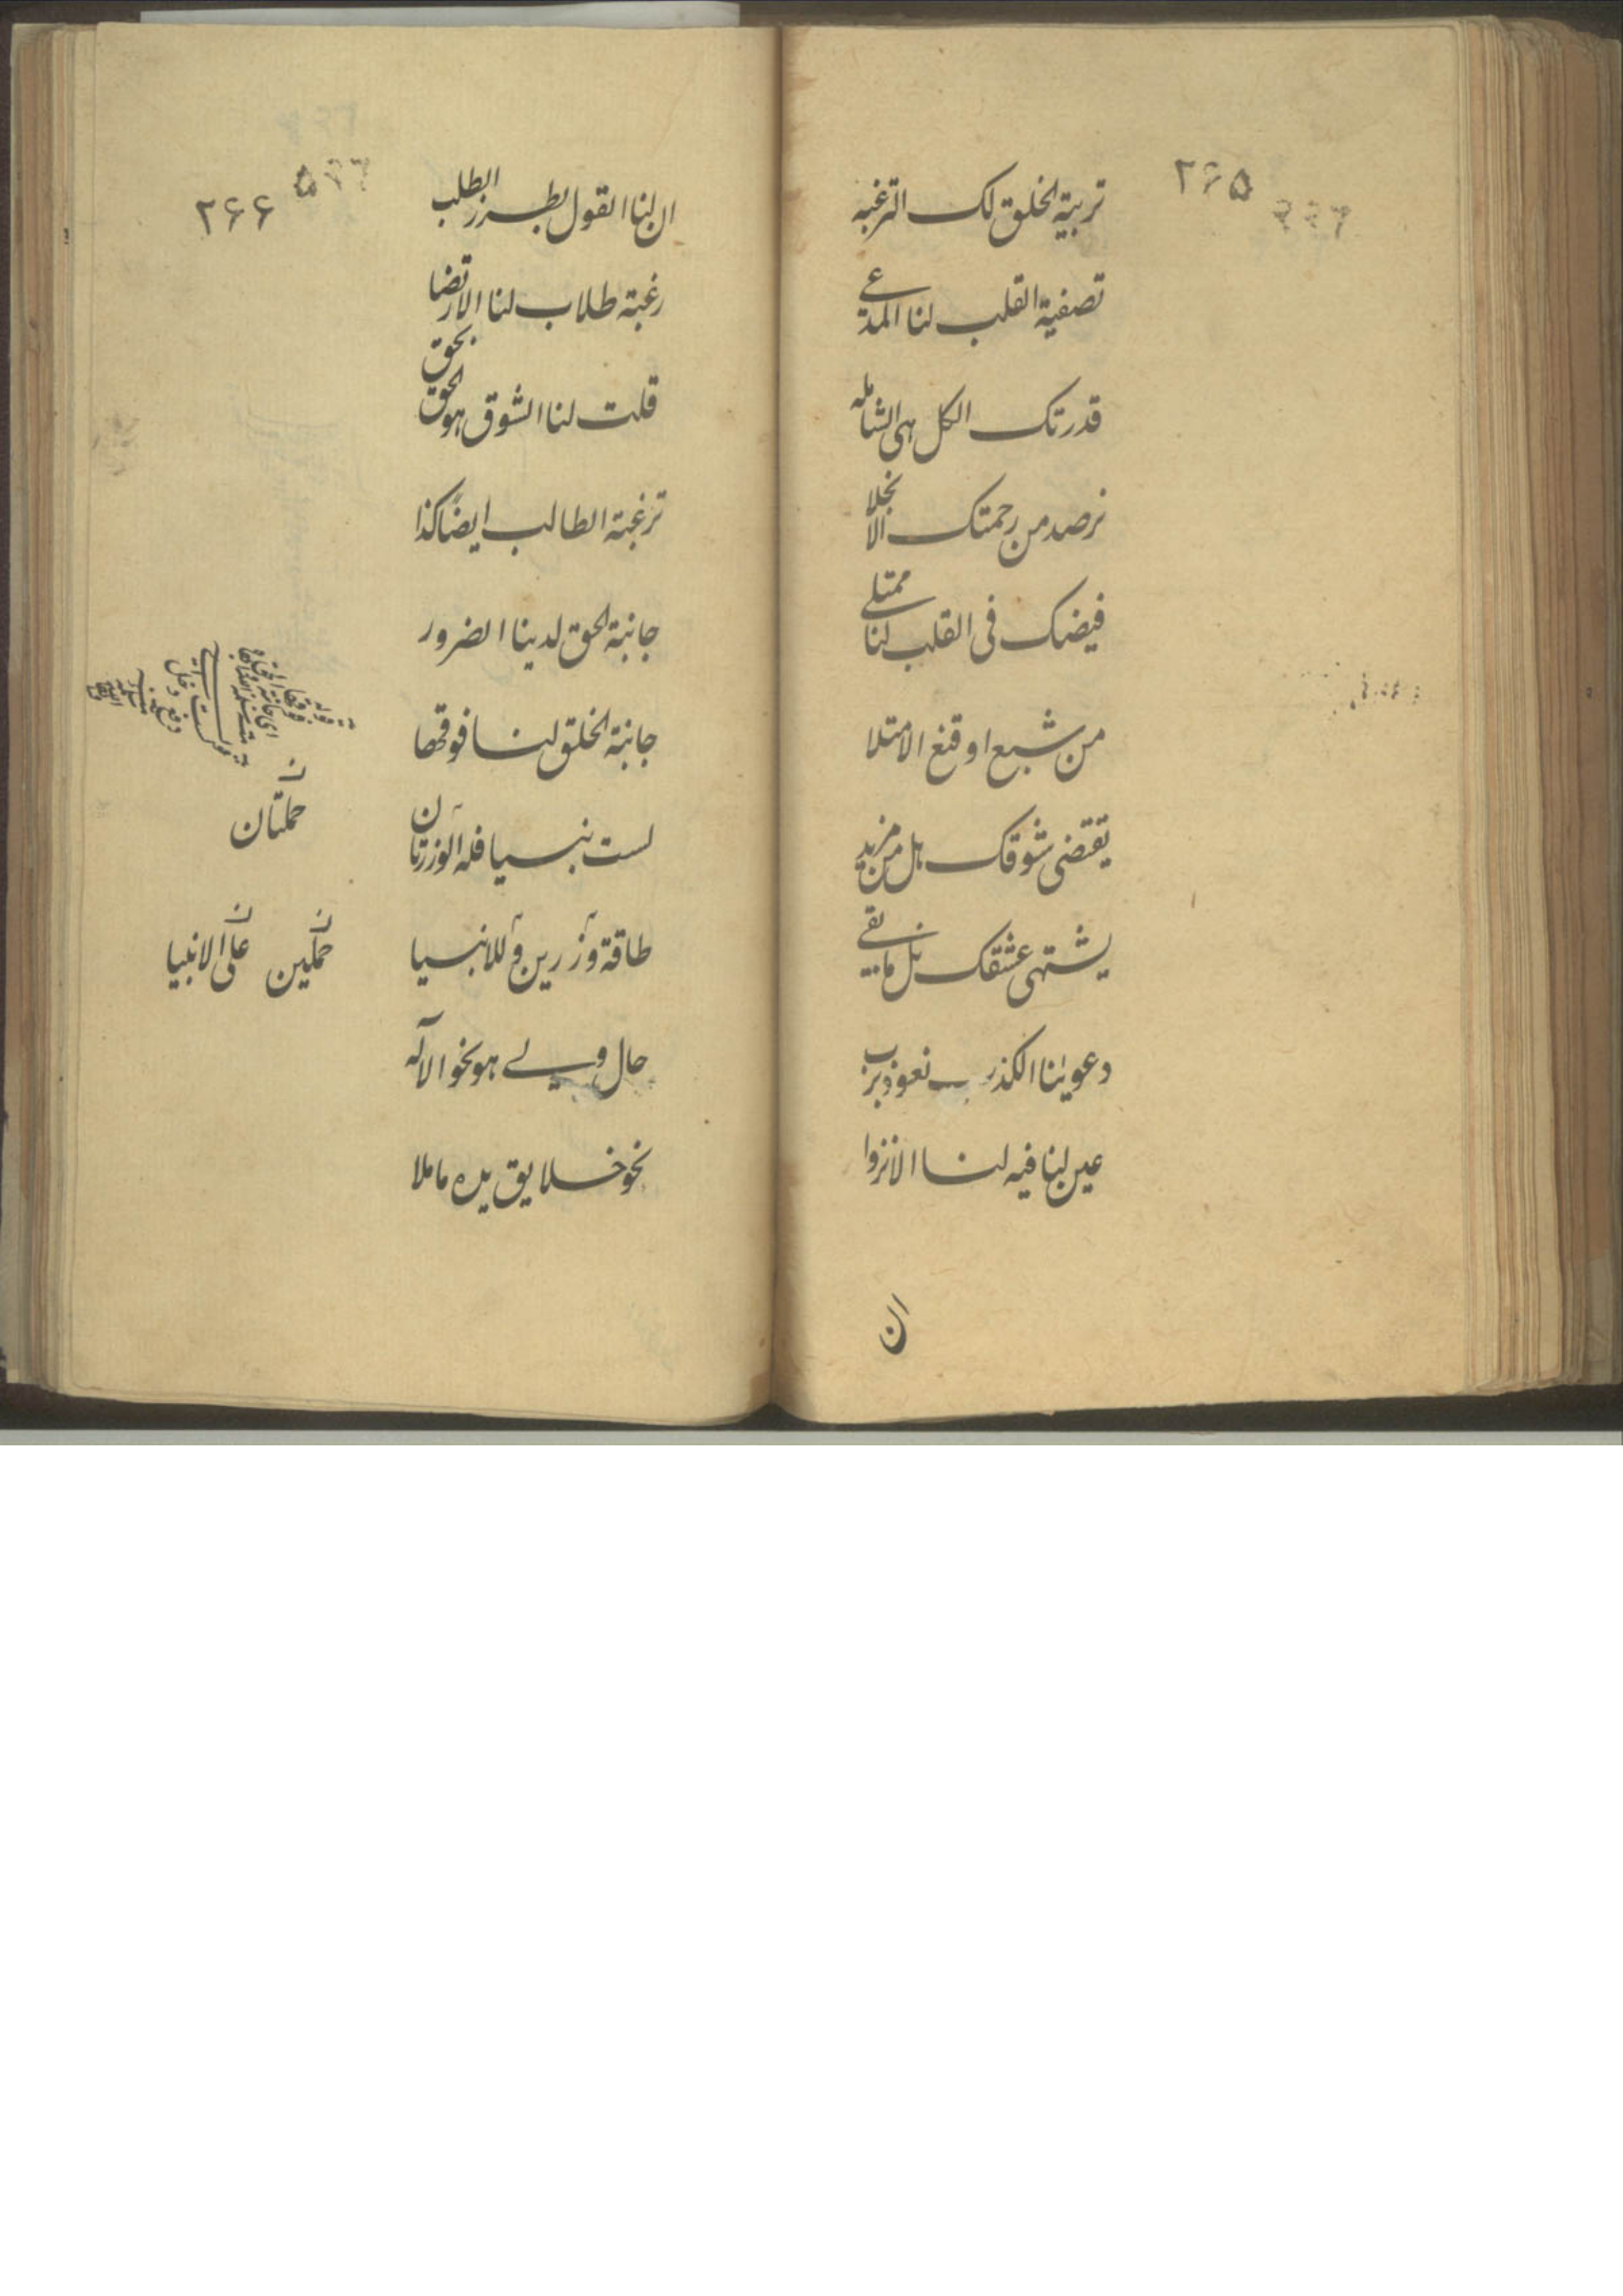 ۲۶۵
تربیة الخلق لک الترغبه
تصفیة القلب لنا المدعی
قدرتک الکل هی الشامله
نرصد من رحمتک الانجلا
فیضک فی القلب لنا ممتلی
من شبع او قنع الامتلا
یقتضی شوقک هل من مزید
یشتهی عشقک نل ما بقی
دعویٰنا الکذب نعوذ برب
عین لنا فیه لنا الانزوا
ان
۲۶۶
ان لنا القول بطرز الطلب
رغبة طلاب لنا الارتضا
قلت لنا الشوق هو الحق بحق
ترغبة الطالب ایضًا کذا
جانبة الحق لدینا الضرور
جانبة الخلق لنا فوقها
لست نبیا فله الوزرتان
طاقة وزرین وللانبیا
حال ولی هو نحو الاله
نحو خلایق یده ما ملا
ن
حملتان
ن ن
حملین علی الانبیا